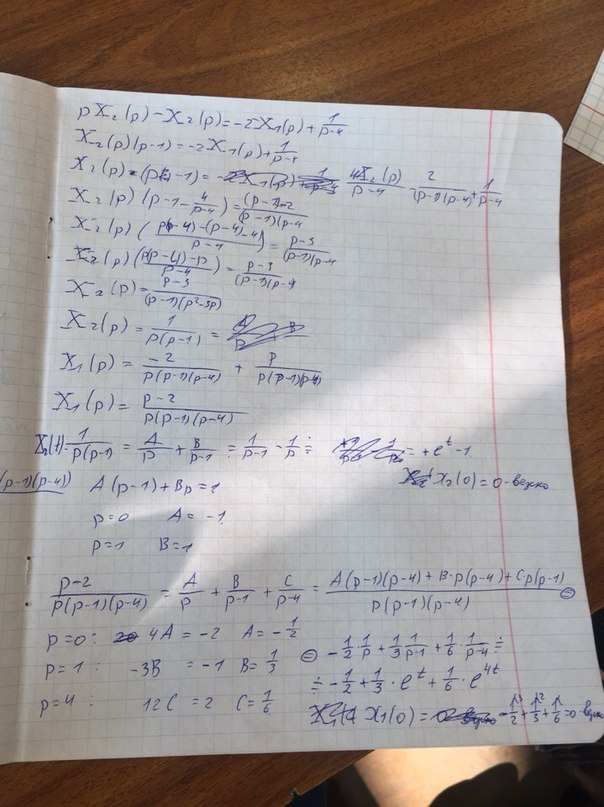 pX₂(p) - X₂(p) = -2X₁(p) + 1/(p-4)
X₂(p)(p-1) = -2X₁(p) + 1/(p-4)
X₂(p)·(p-1) = 4X₂(p)/(p-4) - 2/((p-1)(p-4)) + 1/(p-4)
X₂(p)(p-1-4/(p-4)) = (p-1-2)/((p-1)(p-4)
X₂(p)((p(p-4)-(p-4)-4)/(p-4)) = (p-3)/((p-1)(p-4)
X₂(p)((p(p-4)-p)/(p-4)) = (p-3)/((p-1)(p-4)
X₂(p) = (p-3)/((p-1)(p²-3p))
X₂(p) = 1/(p(p-1)) =
X₁(p) = -2/(p(p-1)(p-4)) + p/(p(p-1)(p-4))
X₁(p) = (p-2)/(p(p-1)(p-4))
X₂(t) = 1/(p(p-1)) = A/p + B/(p-1) = 1/(p-1) - 1/p ≑ = +e^t - 1
(p-1)(p-4))
A(p-1) + Bp = 1
x₂(0) = 0 - верно
p=0 A = -1
p=1 B = 1
(p-2)/(p(p-1)(p-4)) = A/p + B/(p-1) + C/(p-4) = (A(p-1)(p-4) + B·p(p-4) + Cp(p-1))/(p(p-1)(p-4)) ⊜
p=0: 4A = -2 A = -1/2
⊜ -1/2·1/p + 1/3·1/(p-1) + 1/6·1/(p-4) ≑
p=1: -3B = -1 B = 1/3
≑ -1/2 + 1/3·e^t + 1/6·e^4t
p=4: 12C = 2 C = 1/6
X₁(0) = -1/2 + 1/3 + 1/6 = 0 верно